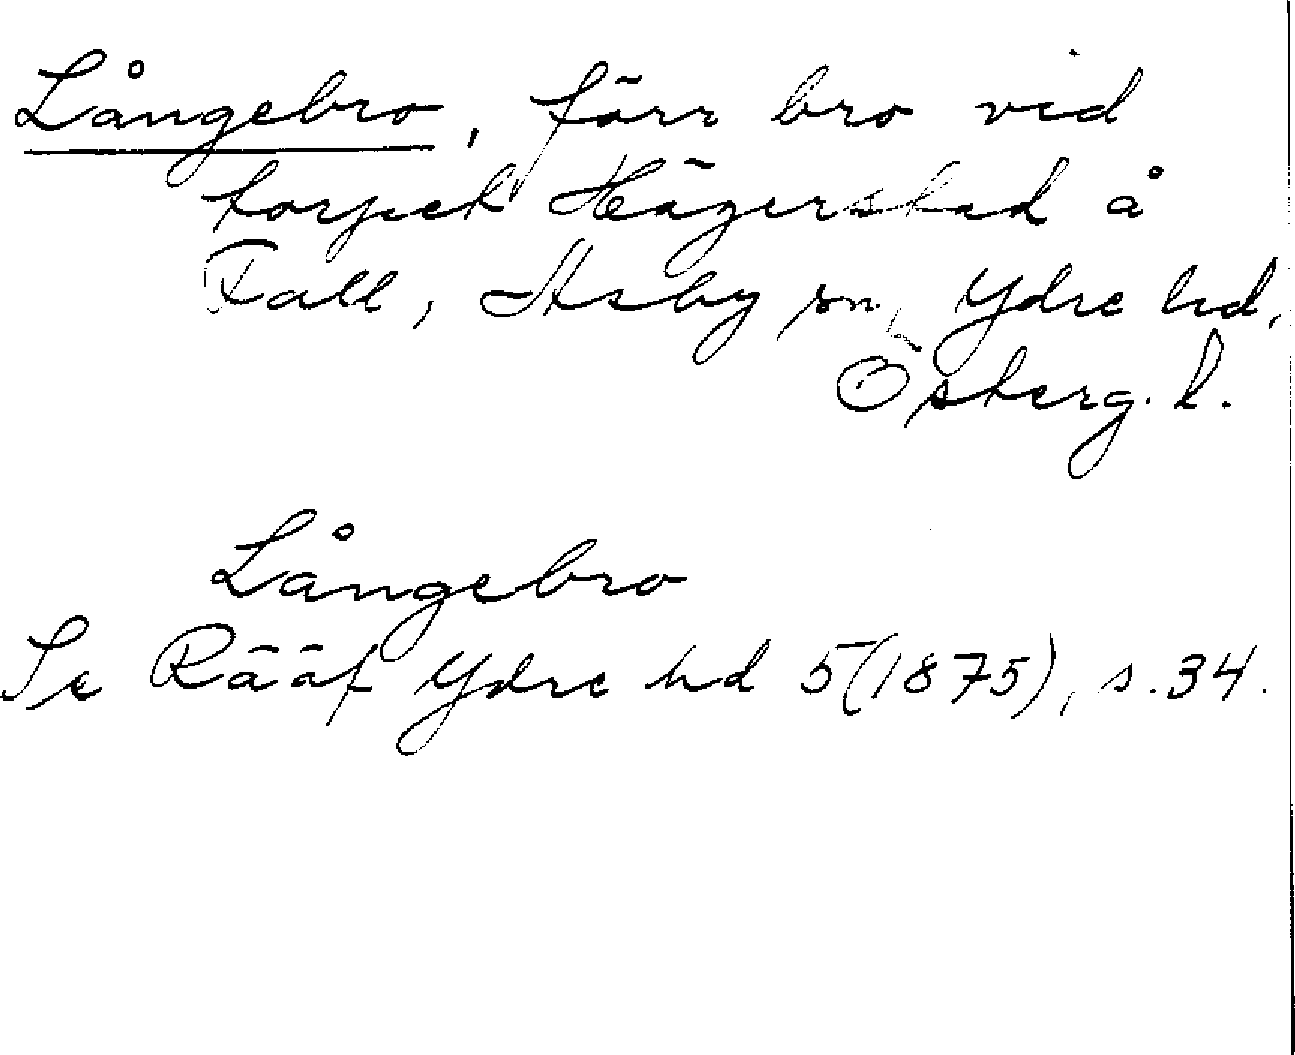 Långebro, förr bro vid
torpet Hägerstad å
Fall, Asby sn, Ydre hd,
Österg. l.
Långebro
Se Rääf Ydre hd 5 (1875), s. 34.